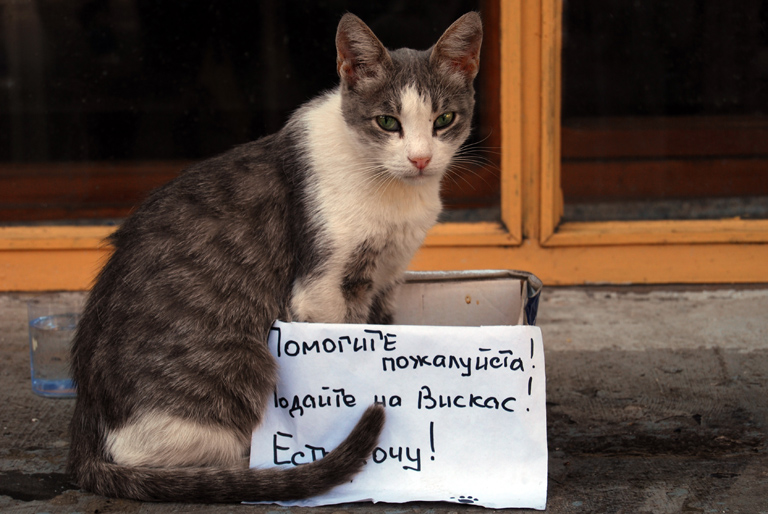 Помогите
пожалуйста!
Подайте на Вискас!
Есть хочу!